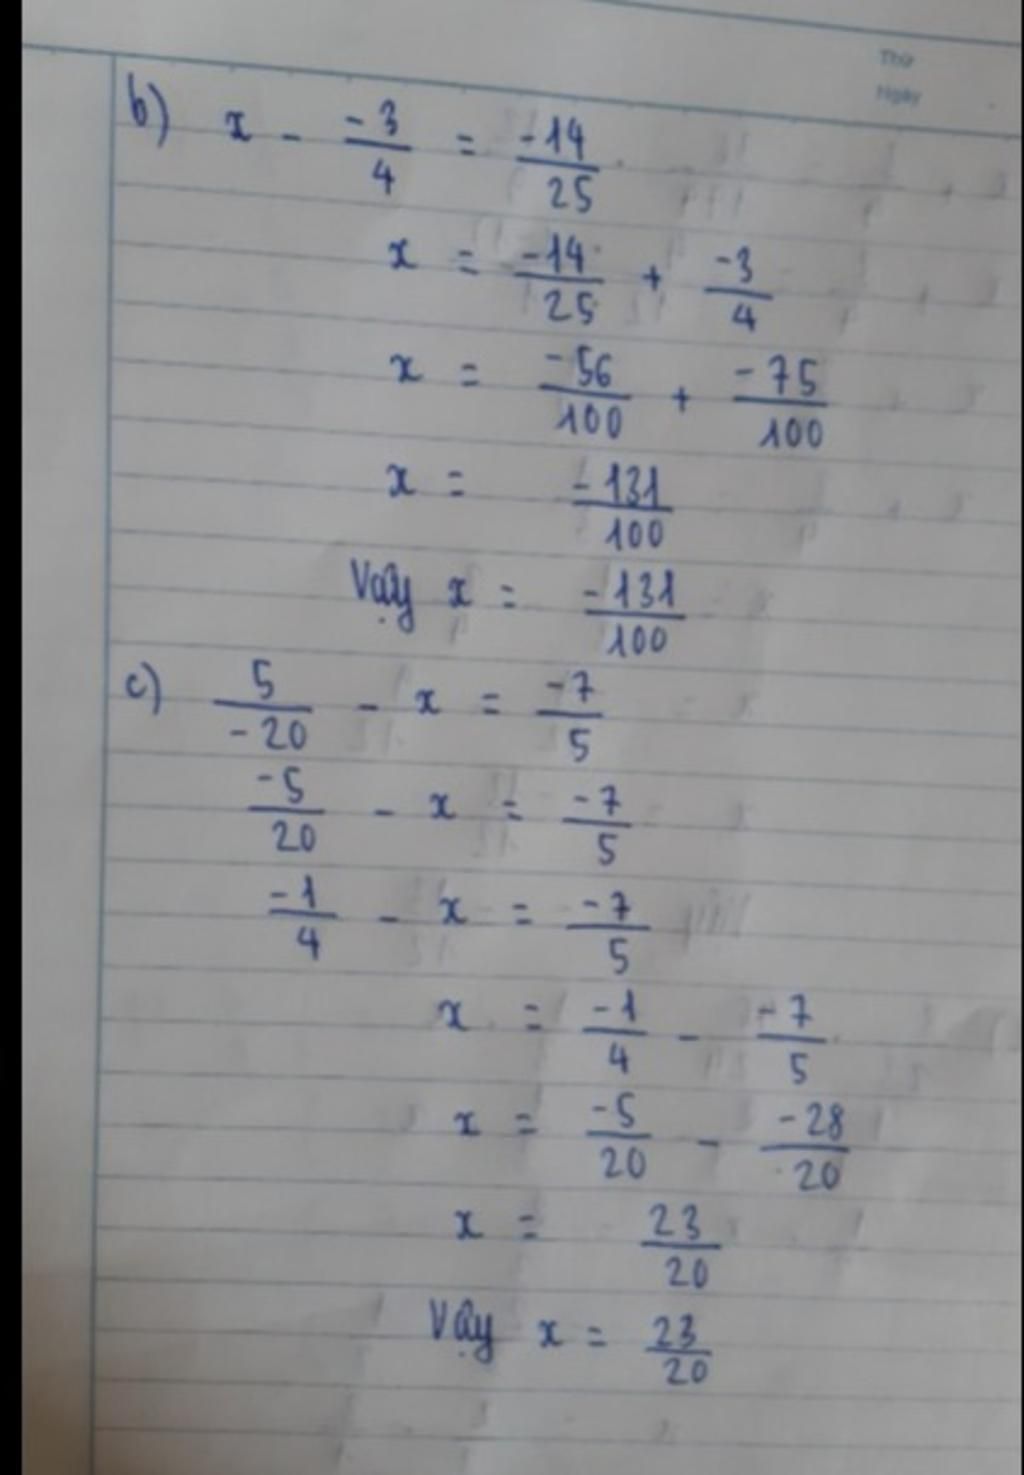 Thứ
Ngày
b) x - -3/4 = -14/25
x = -14/25 + -3/4
x = -56/100 + -75/100
x = -131/100
Vậy x = -131/100
c) 5/-20 - x = -7/5
-5/20 - x = -7/5
-1/4 - x = -7/5
x = -1/4 - -7/5
x = -5/20 - -28/20
x = 23/20
Vậy x = 23/20